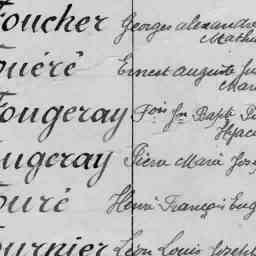 Foucher Georges alexandre
Mathu
ouéré Ernest auguste Ju
Mari
Fougeray Fois Jn Bapte Pi
Hyac
ougeray Pierre Marie Jose
ouré Henri François Eug
ournier Léon Louis Joseph